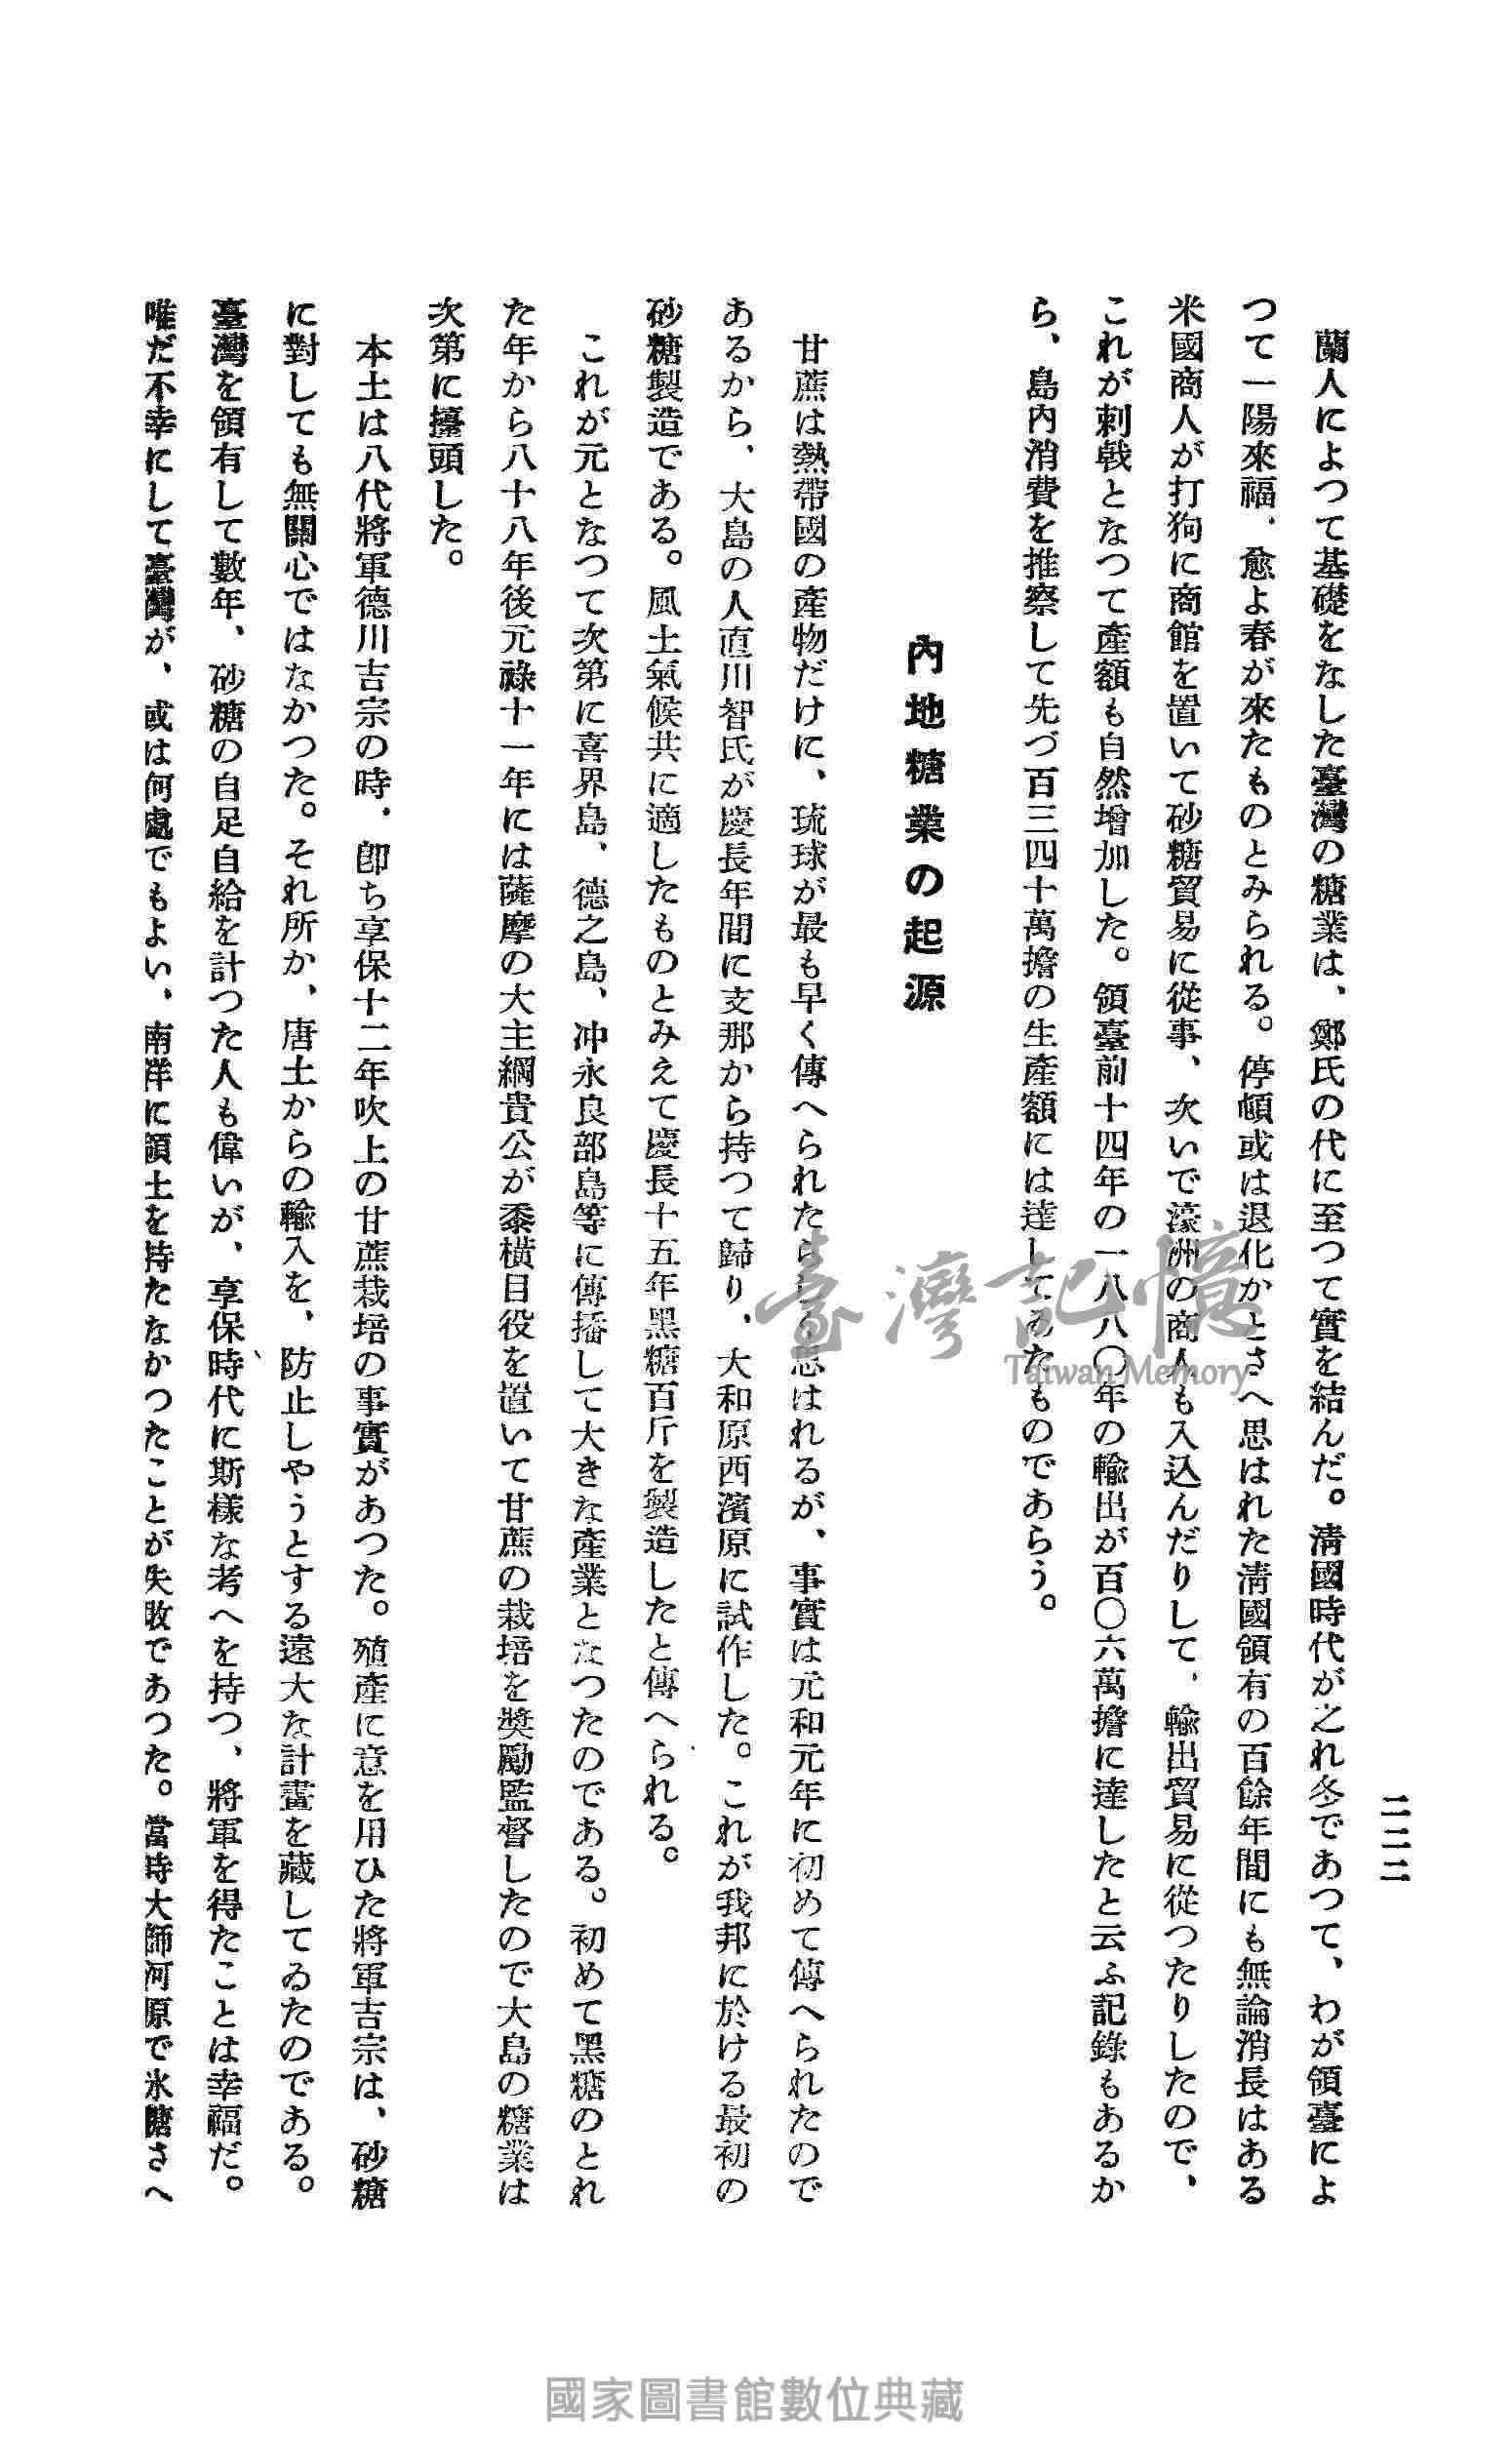 二二二
蘭人によつて基礎をなした臺灣の糖業は、鄭氏の代に至つて實を結んだ。淸國時代が之れ冬であつて、わが領臺によ
つて一陽來福、愈よ春が來たものとみられる。停頓或は退化かとさへ思はれた淸國領有の百餘年間にも無論消長はある
米國商人が打狗に商館を置いて砂糖貿易に從事、次いで濠洲の商人も入込んだりして、輸出貿易に從つたりしたので、
これが刺戟となつて產額も自然增加した。領臺前十四年の一八八〇年の輸出が百〇六萬擔に達したと云ふ記錄もあるか
ら、島內消費を推察して先づ百三四十萬擔の生產額には達してゐたものであらう。
內地糖業の起源
甘蔗は熱帶國の產物だけに、琉球が最も早く傳へられたらしく思はれるが、事實は元和元年に初めて傳へられたので
あるから、大島の人直川智氏が慶長年間に支那から持つて歸り、大和原西濱原に試作した。これが我邦に於ける最初の
砂糖製造である。風土氣候共に適したものとみえて慶長十五年黑糖百斤を製造したと傳へられる。
これが元となつて次第に喜界島、德之島、冲永良部島等に傳播して大きな產業となつたのである。初めて黑糖のとれ
た年から八十八年後元祿十一年には薩摩の大主綱貴公が黍橫目役を置いて甘蔗の栽培を奬勵監督したので大島の糖業は
次第に擡頭した。
本土は八代將軍德川吉宗の時、卽ち享保十二年吹上の甘蔗栽培の事實があつた。殖產に意を用ひた將軍吉宗は、砂糖
に對しても無關心ではなかつた。それ所か、唐土からの輸入を、防止しやうとする遠大な計畫を藏してゐたのである。
臺灣を領有して數年、砂糖の自足自給を計つた人も偉いが、享保時代に斯樣な考へを持つ、將軍を得たことは幸福だ。
唯だ不幸にして臺灣が、或は何處でもよい、南洋に領土を持たなかつたことが失敗であつた。當時大師河原で氷糖さへ
臺灣記憶
Taiwan Memory
國家圖書館數位典藏